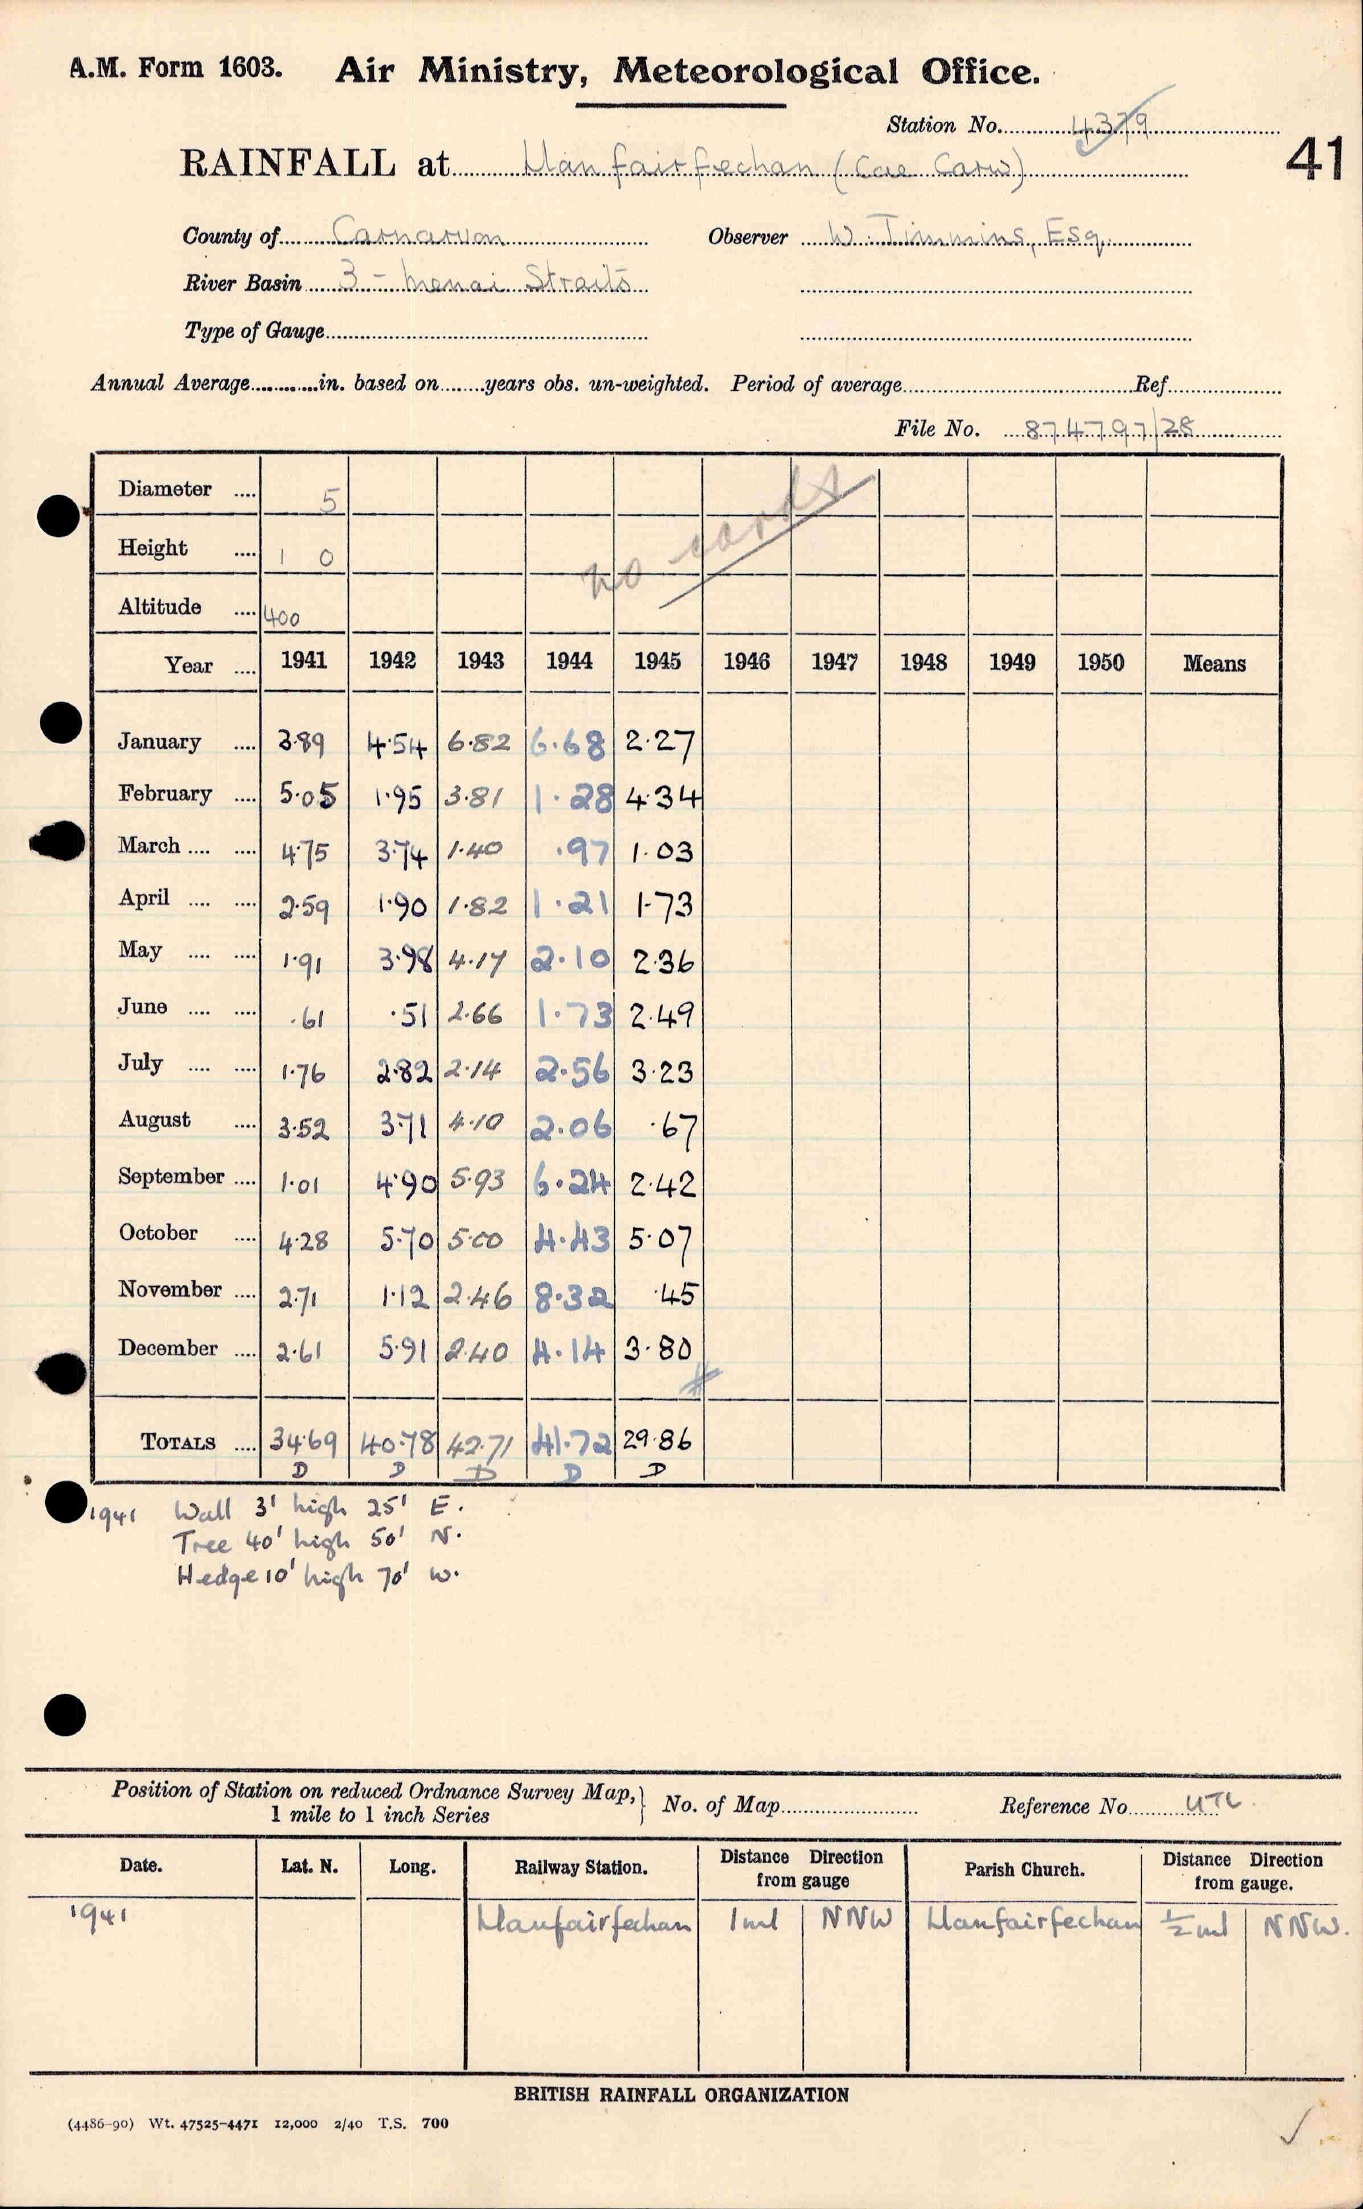 A.M. Form 1603. Air Ministry, Meteorological Office.
Station No. 4379
41
RAINFALL at Llanfairfechan (Cae Carw)
County of Carnarvon Observer W. Timmins, Esq.
River Basin 3 - Menai Straits
Type of Gauge
Annual Average in. based on years obs. un-weighted. Period of average Ref
File No. 874797/28
no cards
Diameter 5
Height 1 0
Altitude 400
Year 1941 1942 1943 1944 1945 1946 1947 1948 1949 1950 Means
January 3.89 4.54 6.82 6.68 2.27
February 5.05 1.95 3.81 1.28 4.34
March 4.75 3.74 1.40 .97 1.03
April 2.59 1.90 1.82 1.21 1.73
May 1.91 3.98 4.17 2.10 2.36
June .61 .51 2.66 1.73 2.49
July 1.76 2.82 2.14 2.56 3.23
August 3.52 3.71 4.10 2.06 .67
September 1.01 4.90 5.93 6.24 2.42
October 4.28 5.70 5.00 4.43 5.07
November 2.71 1.12 2.46 8.32 .45
December 2.61 5.91 2.40 4.14 3.80
TOTALS 34.69 40.78 42.71 41.72 29.86
D D D D D
1941 Wall 3' high 25' E.
Tree 40' high 50' N.
Hedge 10' high 70' W.
Position of Station on reduced Ordnance Survey Map, 1 mile to 1 inch Series } No. of Map Reference No. UTL
Date. Lat. N. Long. Railway Station. Distance Direction from gauge Parish Church. Distance Direction from gauge.
1941 Llanfairfechan 1 ml NNW Llanfairfechan ½ ml NNW.
BRITISH RAINFALL ORGANIZATION
(4486-90) Wt. 47525-4471 12,000 2/40 T.S. 700